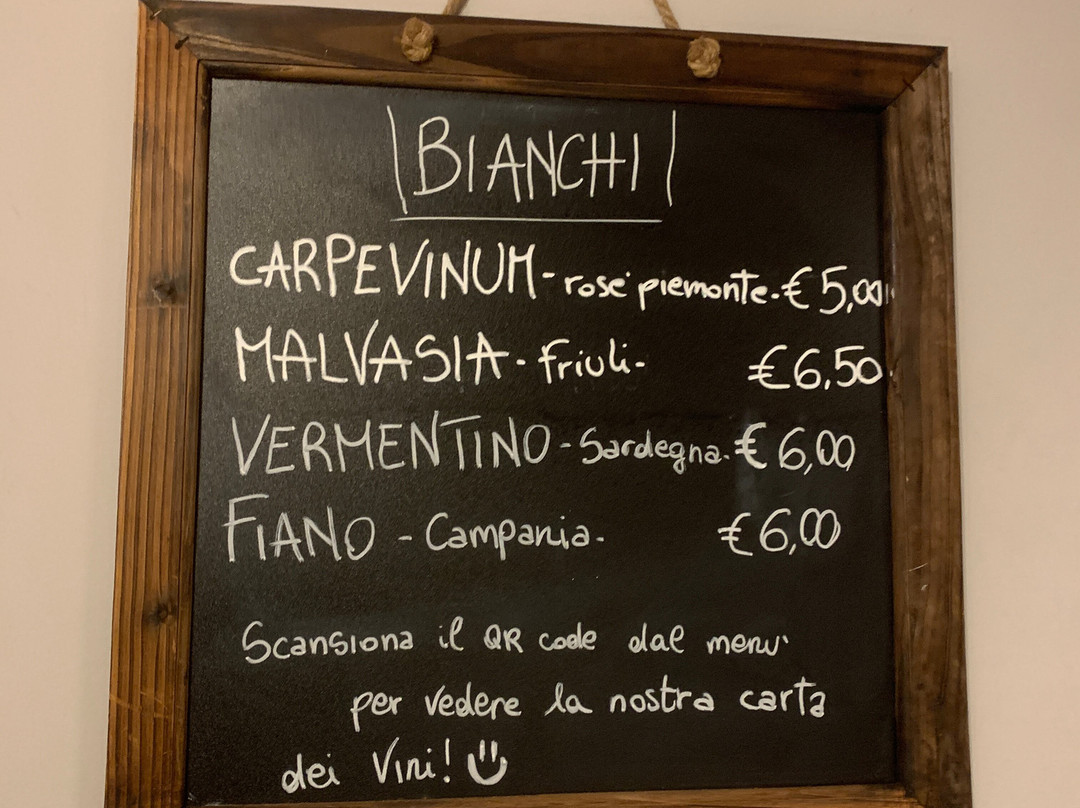 BIANCHI
CARPEVINUM - rosé piemonte. € 5,00
MALVASIA - friuli - € 6,50
VERMENTINO - Sardegna. € 6,00
FIANO - Campania. € 6,00
Scansiona il QR code dal menu'
per vedere la nostra carta
dei Vini!